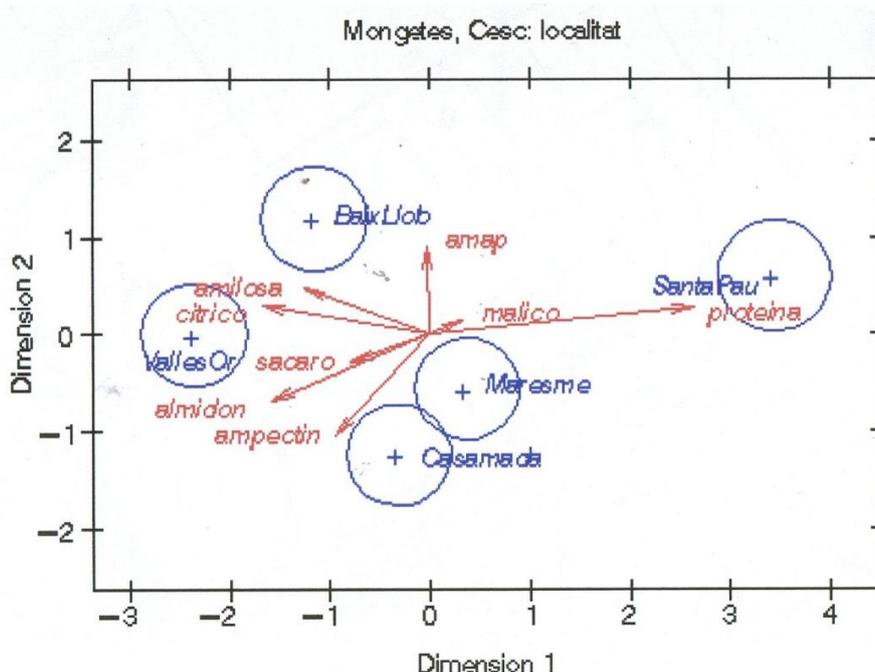 Mongetes, Cesc: localitat
2
1
0
−1
−2
Dimension 2
BaixLlob
amap
amilosa
citrico
malico
SantaPau
proteina
VallesOr
sacaro
Maresme
almidon
ampectin
Casamada
−3 −2 −1 0 1 2 3 4
Dimension 1